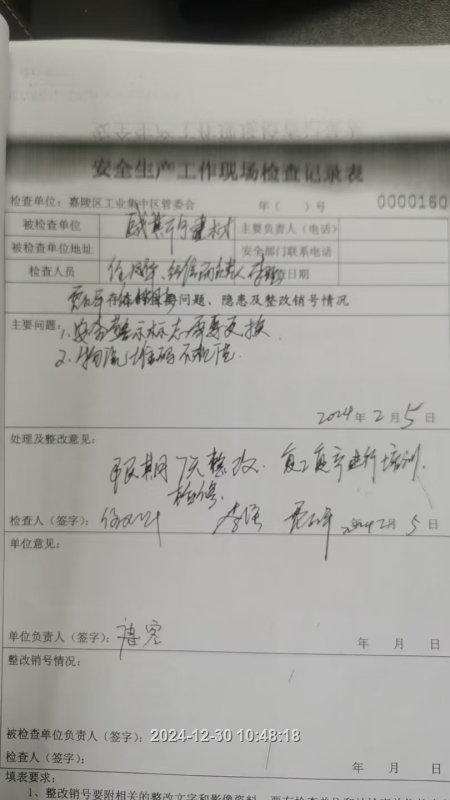 安全生产工作现场检查记录表
检查单位：嘉陵区工业集中区管委会 年（ ）号 0000160
被检查单位 建材 主要负责人（电话）
被检查单位地址 安全部门联系电话
检查人员 日期
问题、隐患及整改销号情况
主要问题：1.安全警示标志需要更换
2.物流堆码不规范.
2024年2月5日
处理及整改意见：
限期7天整改. 复工复产进行培训.
检修.
检查人（签字）： 2024年2月5日
单位意见：
单位负责人（签字）： 年 月 日
整改销号情况：
被检查单位负责人（签字）：
检查人（签字）： 年 月 日
2024-12-30 10:48:18
填表要求：
1、整改销号要附相关的整改文字和影像资料